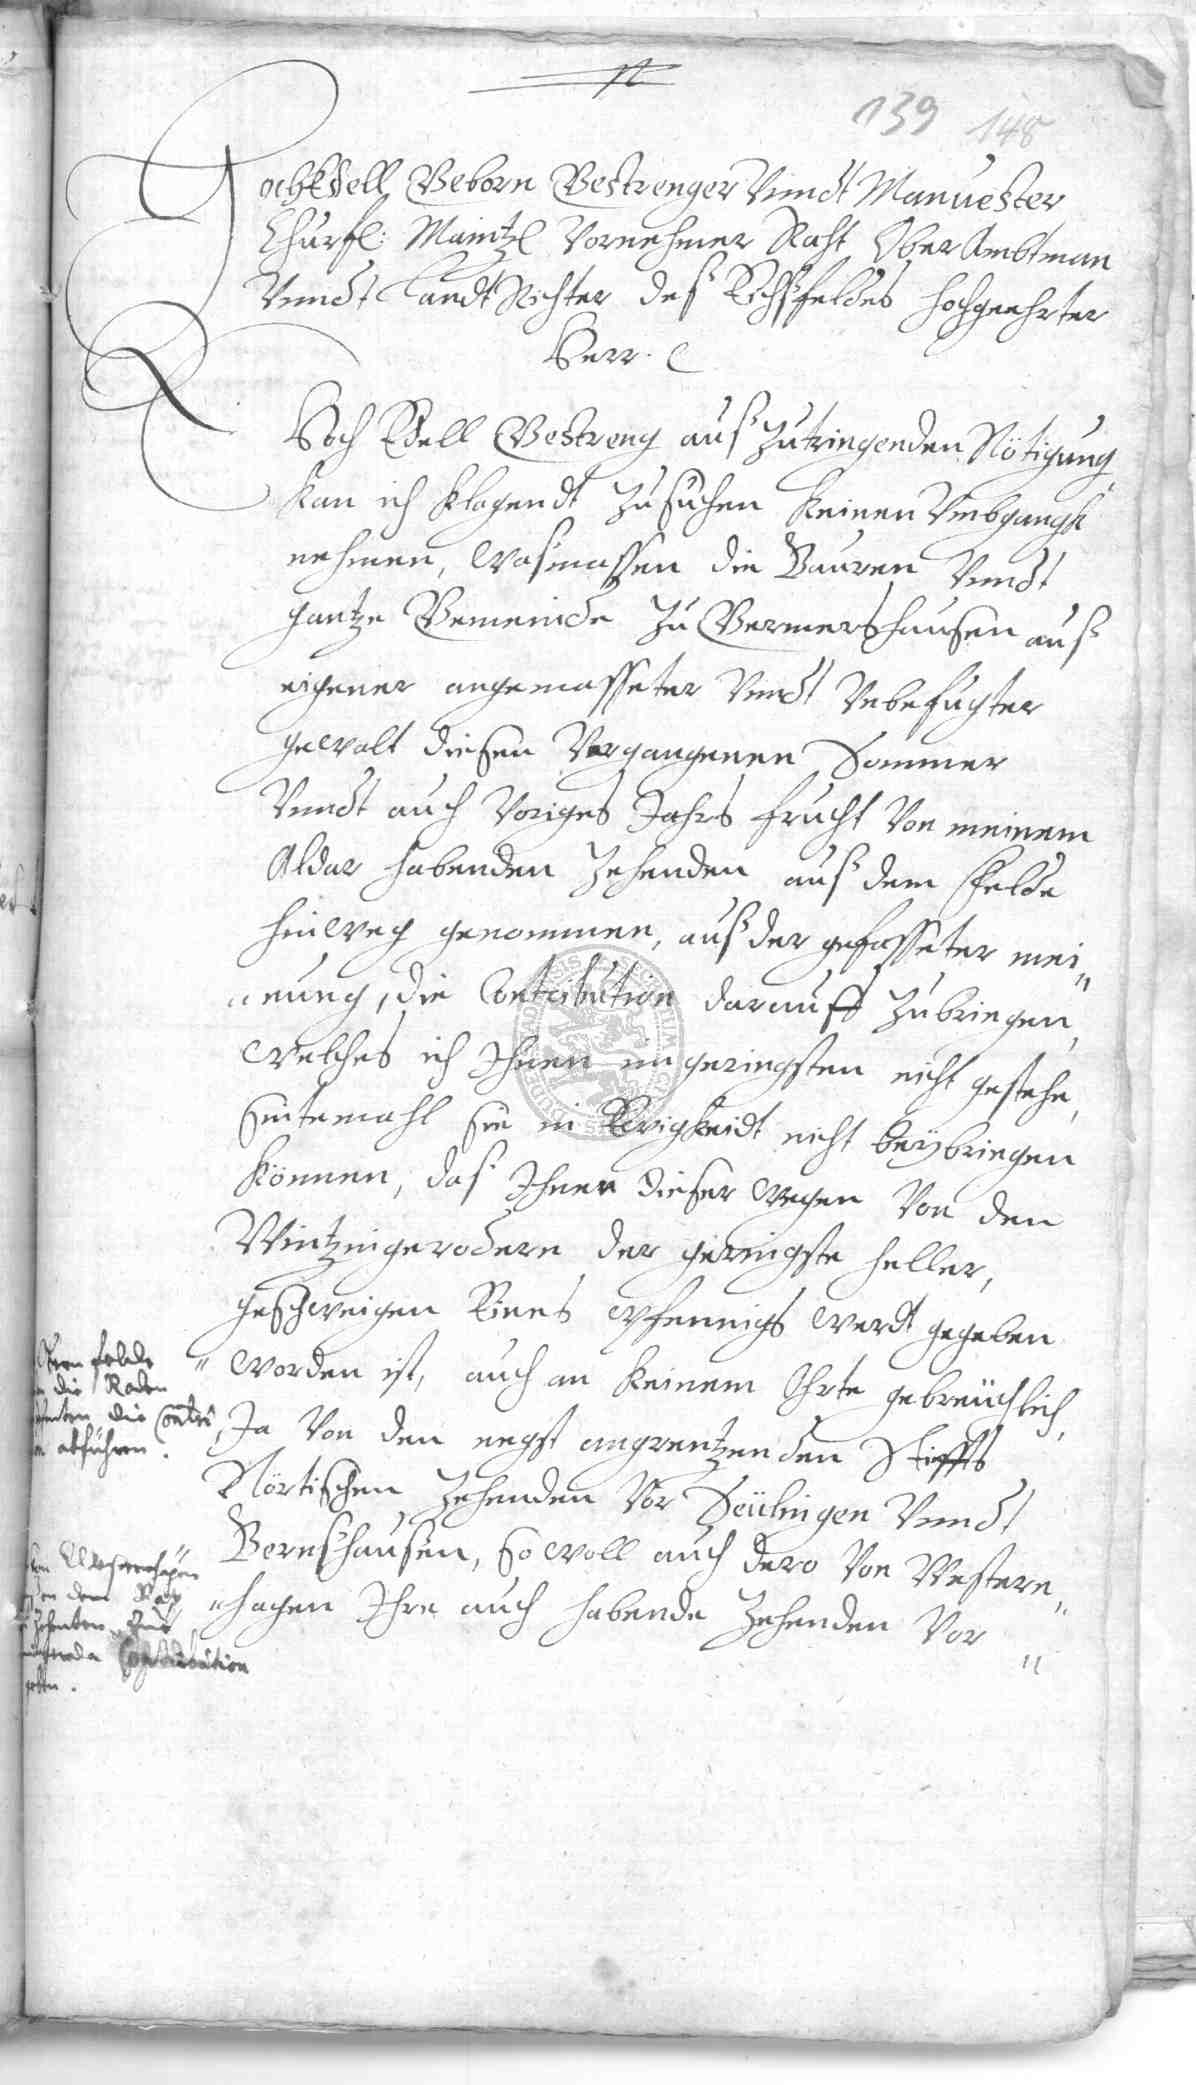 139 148
HochEdell Geborn Gestrenger Vnndt Manuester
Churfl: Maintzl Vornehmer Raht Ober Ambtman
Vnndt Landt Richter deß Eichßfeldes hochgeehrter
Herr.
Hoch Edell Gestreng auß zutringenden Nötigung
kan ich klagendt zu suchen keinen Vmbgangk
nehmen, wasmassen die Bauren Vnndt
gantze Gemeinde zu Germershausen auß
eigener angemasseter Vnndt Vnbefugter
gewalt diesen Vergangenen Sommer
Vnndt auch Voriges Jahrs frucht Von meinem
Aldar habenden Zehenden auß dem Felde
hinweg genommen, auß der gefasseter mei„
„nung, die Contribution darauff zubringen,
welches ich Ihnen im geringsten nicht gestehe,
Sintemahl sie in Ewigkeidt nicht beybringen
können, das Ihnen dieser wegen Von den
Wintzingerodern der geringste heller,
geschweigen Eines Pfennigs werdt gegeben
„ worden ist, auch an keinem Ohrte gebreüchlich,
Ja Von den negst angrentzenden Stiffts
Nörtischen Zehenden Vor Seülingen Vnndt
Bernßhausen, so woll auch dero Von Western„
„hagen Ihre auch habende Zehenden Vor „
felde
die Roden
die Contri
abführen.
von dem
Zehenten
Contribution
geben.